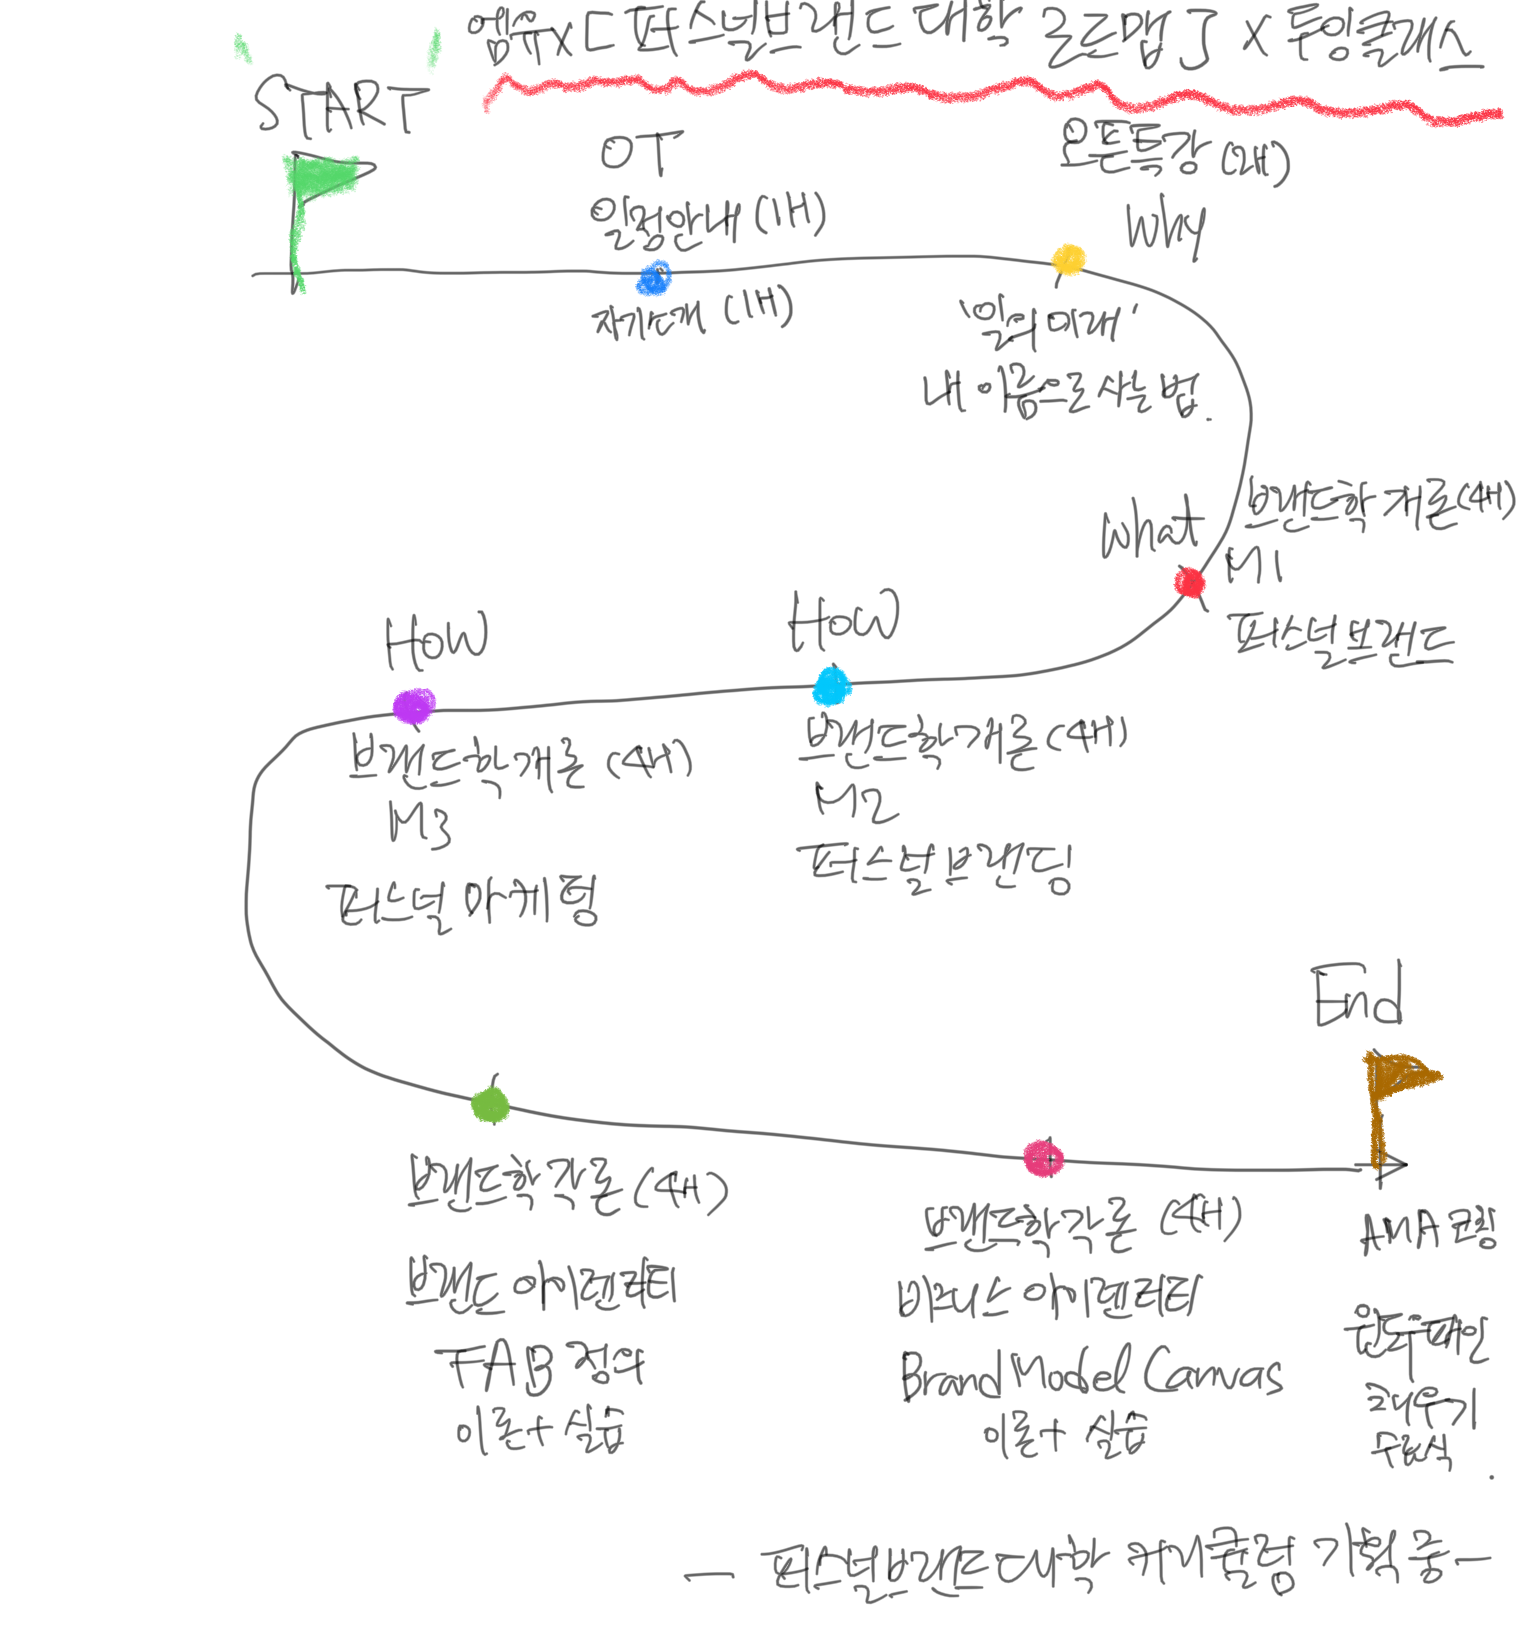 엠유x [퍼스널브랜드 대학 로드맵] x 투잉클래스
START
OT
일정안내 (1H)
자기소개 (1H)
오픈특강 (2H)
Why
'일의 미래'
내 이름으로 사는 법.
What
브랜드학 개론 (4H)
M1
퍼스널브랜드
HOW
브랜드학개론 (4H)
M2
퍼스널브랜딩
HOW
브랜드학개론 (4H)
M3
퍼스널 마케팅
브랜드학각론 (4H)
브랜드 아이덴티티
FAB 정의
이론 + 실습
브랜드학각론 (4H)
비즈니스 아이덴티티
Brand Model Canvas
이론 + 실습
End
AMA 코칭
윈도우패인
채우기
수료식.
— 퍼스널브랜드대학 커리큘럼 기획 중 —